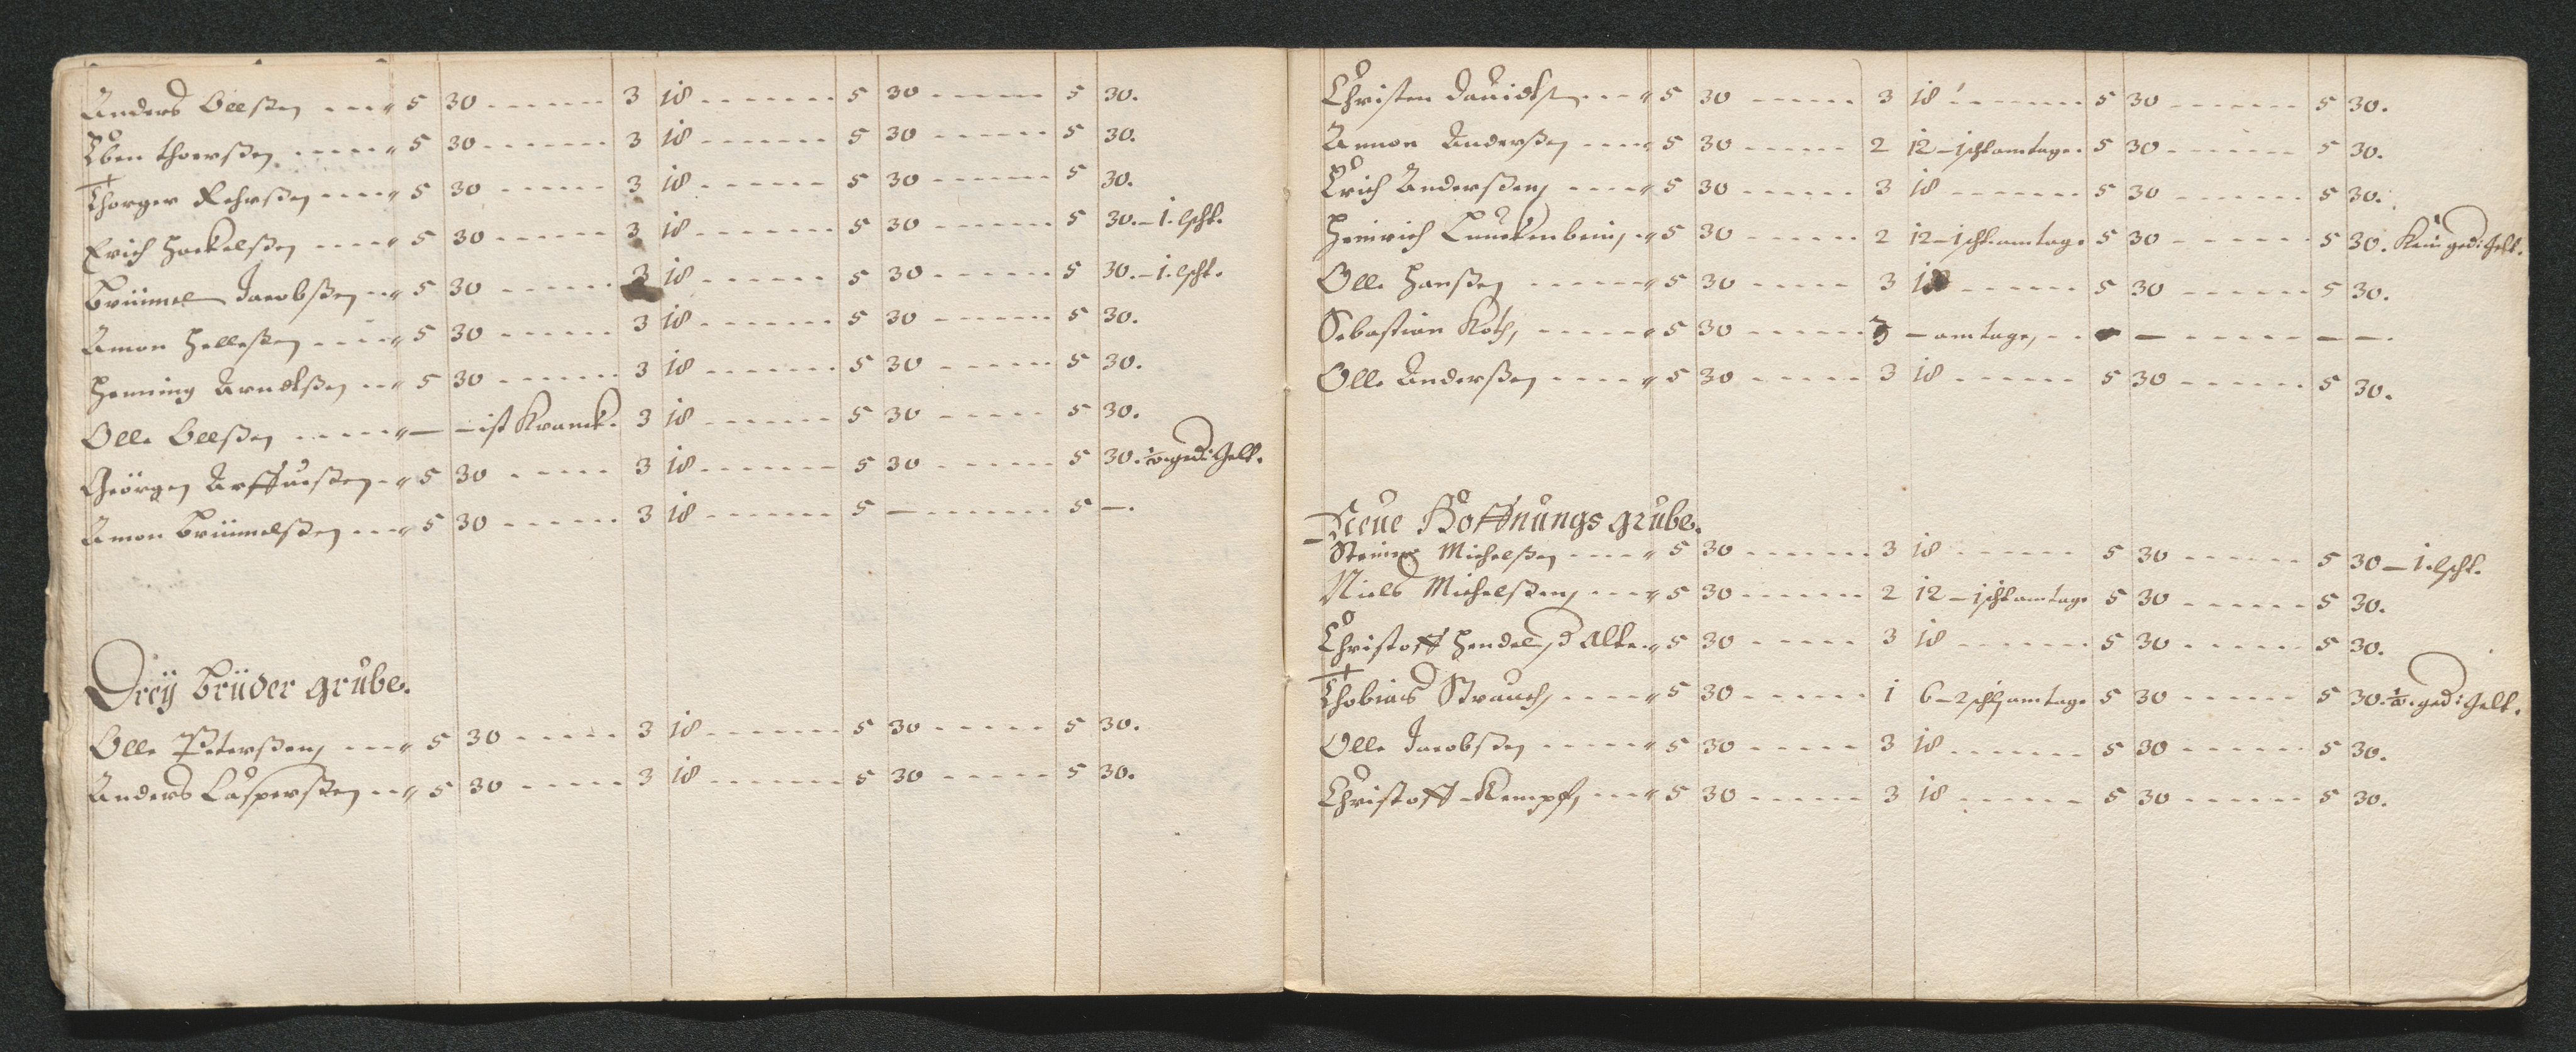 Anders Olsßen ---- " 5 30 ------- 3 18 ------- 5 30 ------ 5 30.
Eben thorsßen ----- " 5 30 ------- 3 18 ------- 5 30 ------ 5 30.
Thorger Rehrsßen ---- " 5 30 ------ 3 18 ------- 5 30 ------ 5 30.
Erich Hackelsßen ---- " 5 30 ------ 3 18 ------- 5 30 ------ 5 30. – 1. lschl.
Brümmel Jacobsßen -- " 5 30 ------ 3 18 ------- 5 30 ------ 5 30. – 1. lschl.
Amon Hellesßen ---- " 5 30 ------ 3 18 ------- 5 30 ------ 5 30.
Henning Arndtsßen -- " 5 30 ------ 3 18 ------- 5 30 ------ 5 30.
Olle Olsßen ----- " — – ist Kranck. 3 18 ------- 5 30 ------ 5 30.
Geörgen -- " 5 30 ----- 3 18 ------- 5 30 ------ 5 30. ged: Gelt.
Amon Brümmelsßen --- " 5 30 ------ 3 18 ------- 5 — ------ 5 —.
Dreÿ Brüder grube.
Olle Petersßen, --- " 5 30 ----- 3 18 ------- 5 30 ----- 5 30.
Anders Caspersßen -- " 5 30 ----- 3 18 ------- 5 30 ----- 5 30.
Christen Davidsß --- " 5 30 ----- 3 18 ------- 5 30 ------- 5 30.
Ammon Andersßen ---- " 5 30 ------ 2 12 – 1 schl amtage. 5 30 ------ 5 30.
Erich Andersßen, ---- " 5 30 ------ 3 18 ------- 5 30 ------- 5 30.
Heinrich Kunckenbein, -- " 5 30 ------ 2 12 – 1 schl. amtage 5 30 ------ 5 30. Kein ged: Gelt.
Olle Hansßen ------ " 5 30 ----- 3 18 ------ 5 30 ------ 5 30.
Sebastian Koth, ----- " 5 30 ------ 3 – amtage, -- — — ------ — —.
Olle Andersßen ----- " 5 30 ----- 3 18 ------ 5 30 ------ 5 30.
Neue Hoffnungs grube.
Steiner Michelsßen ---- " 5 30 ------ 3 18 ------ 5 30 ------ 5 30 – 1. lschl.
Niels Michelsßen, --- " 5 30 ------ 2 12 – 1 schl amtage 5 30 ------ 5 30.
Christoff Hendel, d Alte. " 5 30 ----- 3 18 ------- 5 30 ------ 5 30.
Thobias Strauch, ---- " 5 30 ------ 1 6 – 2 schl amtage 5 30 ------ 5 30. ged: Gelt.
Olle Jacobsßen ----- " 5 30 ----- 3 18 ------- 5 30 ------ 5 30.
Christoff Kempf, --- " 5 30 ----- 3 18 ------ 5 30 ------ 5 30.